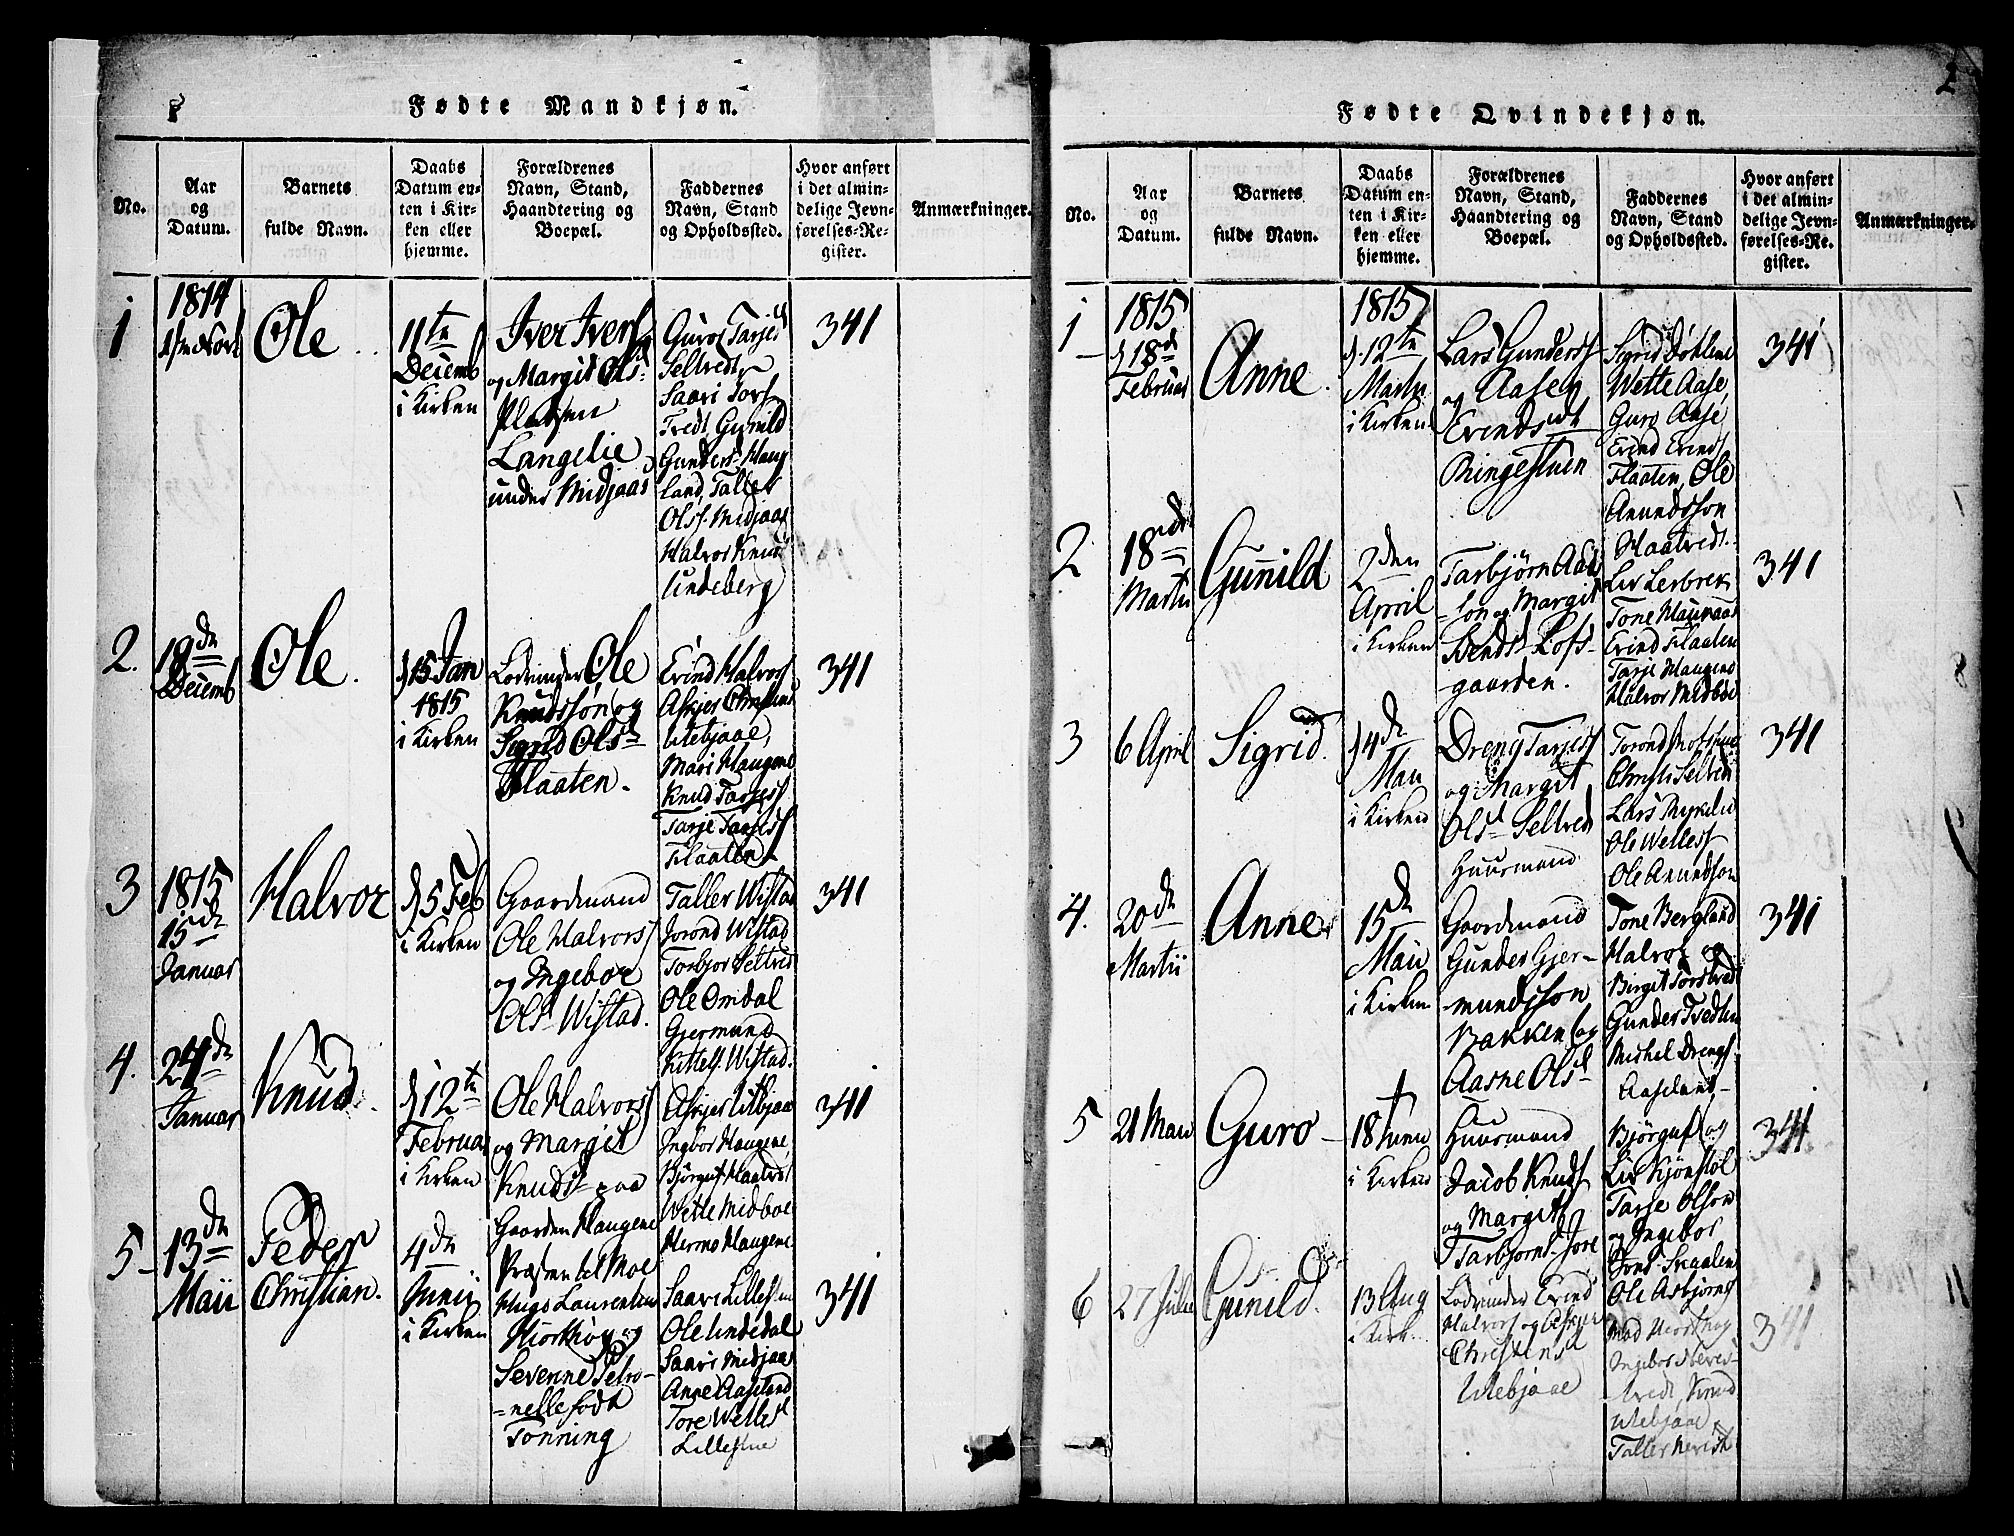 Fødte Mandkjøn.
No.
Aar
og
Datum.
Barnets
fulde Navn.
Daabs
Datum en-
ten i Kir-
ken eller
hjemme.
Forældrenes
Navn, Stand,
Haandtering og
Boepæl.
Faddernes
Navn, Stand
og Opholdssted.
Hvor anført
i det almin-
delige Jevn-
førelses-Re-
gister.
Anmærkninger.
1
1814
Ole
11te
Decemb
i Kirken
Iver Ivers
og Margit Ols
Pladsen
Langelie
under Midjaas
Guroe Tarjes
Seltvedt
Saavi Tors
Tvedt, Gunild
Gunders Haug
land, Talle
Olss. Midjaas
Halvor Knuds
Lindeberg
341
2.
18de
Decemb
Ole.
d 15 Jan
1815
i Kirken
Ole
Knudssøn og
Sigrid Olsd
Flaaten.
Evind Halvors
Askjer Christens
Utebjaae,
Mari Haugene
Knud Tarjess
Tarje Tarjess
Flaaten
341
3
1815
15de
Januar
Halvor
d 5 Feb
i Kirken
Gaardmand
Ole Halvorss
og Ingebor
Olsd Wistad.
Taller Wistad
Jorond Wistad
Torbjor Seltved
Ole Omdal
Gjermund
Kittels. Wistad.
341
4.
24de
Januar
Knud.
d 12te
Februar
i Kirken
Ole Halvorss
og Margit
Knudsd paa
Gaarden Haugene
Askjer Utbjaa
Ingebor Haugene,
Bjørguf Haatvedt
Wette Midboe
Hermo Haugene
341
5
13de
Maii
Peder
Christian.
4de
Junii
i Kirken
Præsten til Moe
Hugo Laurentius
Hiorthøy og
Severine Petro-
=nelle født
Tønning
Saavi Lillestue
Ole Undedal
Saavi Midjaas
Anne Aaseland
Tore Wetles
Lillestue
341
2
Fødte Qvindekjøn.
No.
Aar
og
Datum.
Barnets
fulde Navn.
Daabs
Datum en-
ten i Kir-
ken eller
hjemme.
Forældrenes
Navn, Stand,
Haandtering og
Boepæl.
Faddernes
Navn, Stand
og Opholdssted.
Hvor anført
i det almin-
delige Jevn-
førelses-Re-
gister.
Anmærkninger.
1
1815
d 18de
Februar
Anne.
1815
d. 12te
Martii
i Kirken
Lars Gunderss
og Aasen
Evindsdt
Ringestuen
Sigrid
Wette Aase,
Guro Aase
Evind Evinds
Flaaten, Ole
Anundsson
Haatvedt.
341
2
18de
Martii
Gunild
2den
April
i Kirken
Tarbjørn Aads
-son og Margit
Bendsd Lofs-
-gaarden.
Liv Lerbrek
Tone Haunaas
Evind Flaaten
Tarje Haugene
Halvor Midboe
341
3
6 April
Sigrid.
d 4de
Maii
i Kirken
Dreng Tarjess
og Margit
Olsd Seltved
Huusmand
Torond
Christi Seltved
Lars
Ole Welless
Ole Anundson
341
4.
20de
Martii
Anne
15de
Maii
i Kirken
Gaardmand
Gunder Gjer-
-mundsson
Bakken og
Aasne Olsd
Tone Bergland
Halvor og
Birgit
Gunder Tvedten
Michel Drengs-
Aaseland-
341
5
21 Maii
Guro
18 Junii
i Kirken
Huusmand
Jacob Knuds
og Margit
Tarbjørnsd Jore
Bjørguf og
Liv Kjønstøl
Tarje Olson
og Ingebor
Skaalen
341
6
27 Julii
Gunild.
13 Aug
i Kirk.
Evind
Halvors og Askjer
Christensd
Utebjaae
Ole Asbjørns
Mad Hiorthøy
Ingebor
-tvedt, Knud
Utebjaae
Taller
341